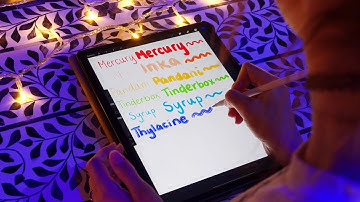 Mercury Mercury
Inka
Pandani Pandani
Tinderbox Tinderbox
Syrup Syrup
Thylacine